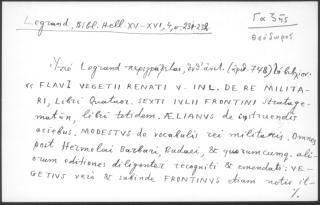 Legrand, Bibl. Hell XV-XVI, 4, σ. 231-232.
Γαζῆς
Θεόδωρος
Ὑπὸ Legrand περιγράφεται, ὑπ' ἀριθ. (748) τὸ βιβλίον.
« FLAVI VEGETII RENATI V. INL. DE RE MILITA-
RI, Libri Quatuor. SEXTI IVLII FRONTINI Stratage-
matôn, libri totidem. ÆLIANUS de instruendis
aciebus. MODESTUS de vocabulis rei militaris. Omnes
post Hermolai Barbari, Budaei, & quorumcunq. ali-
orum editiones diligenter recogniti & emendati: VE-
GETIUS verò & subinde FRONTINUS etiam notis il-
./.